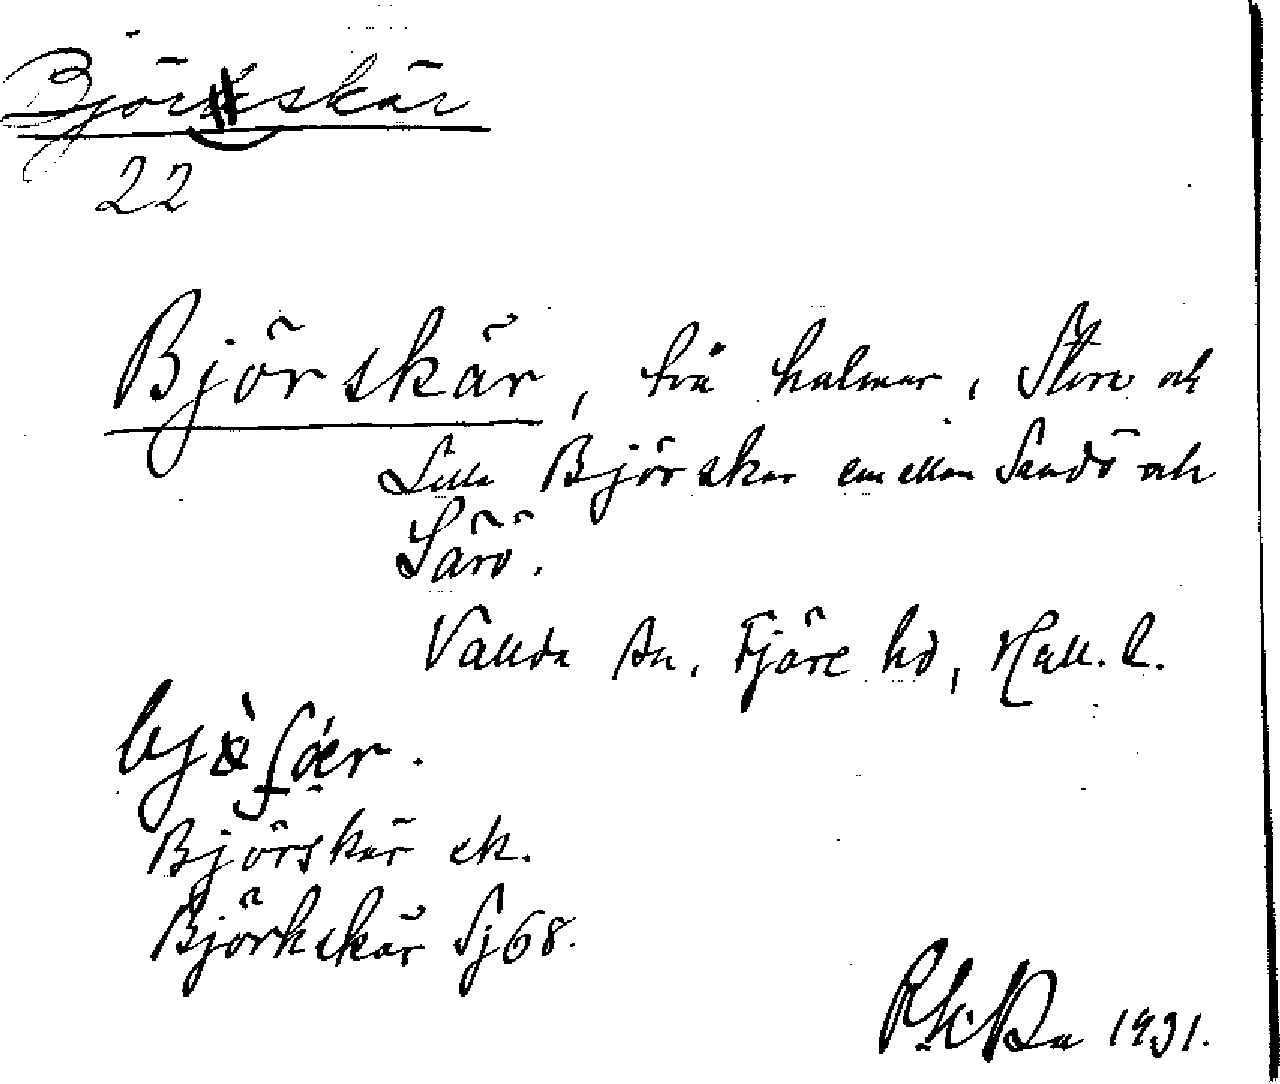 Björkskär
22
Björskär, två holmar, Stora och
Lilla Björskär emellan Sandö och
Särö.
Vallda sn, Fjäre hd, Hall. l.
Björskär ek.
Björkskär Sj 68.
1931.